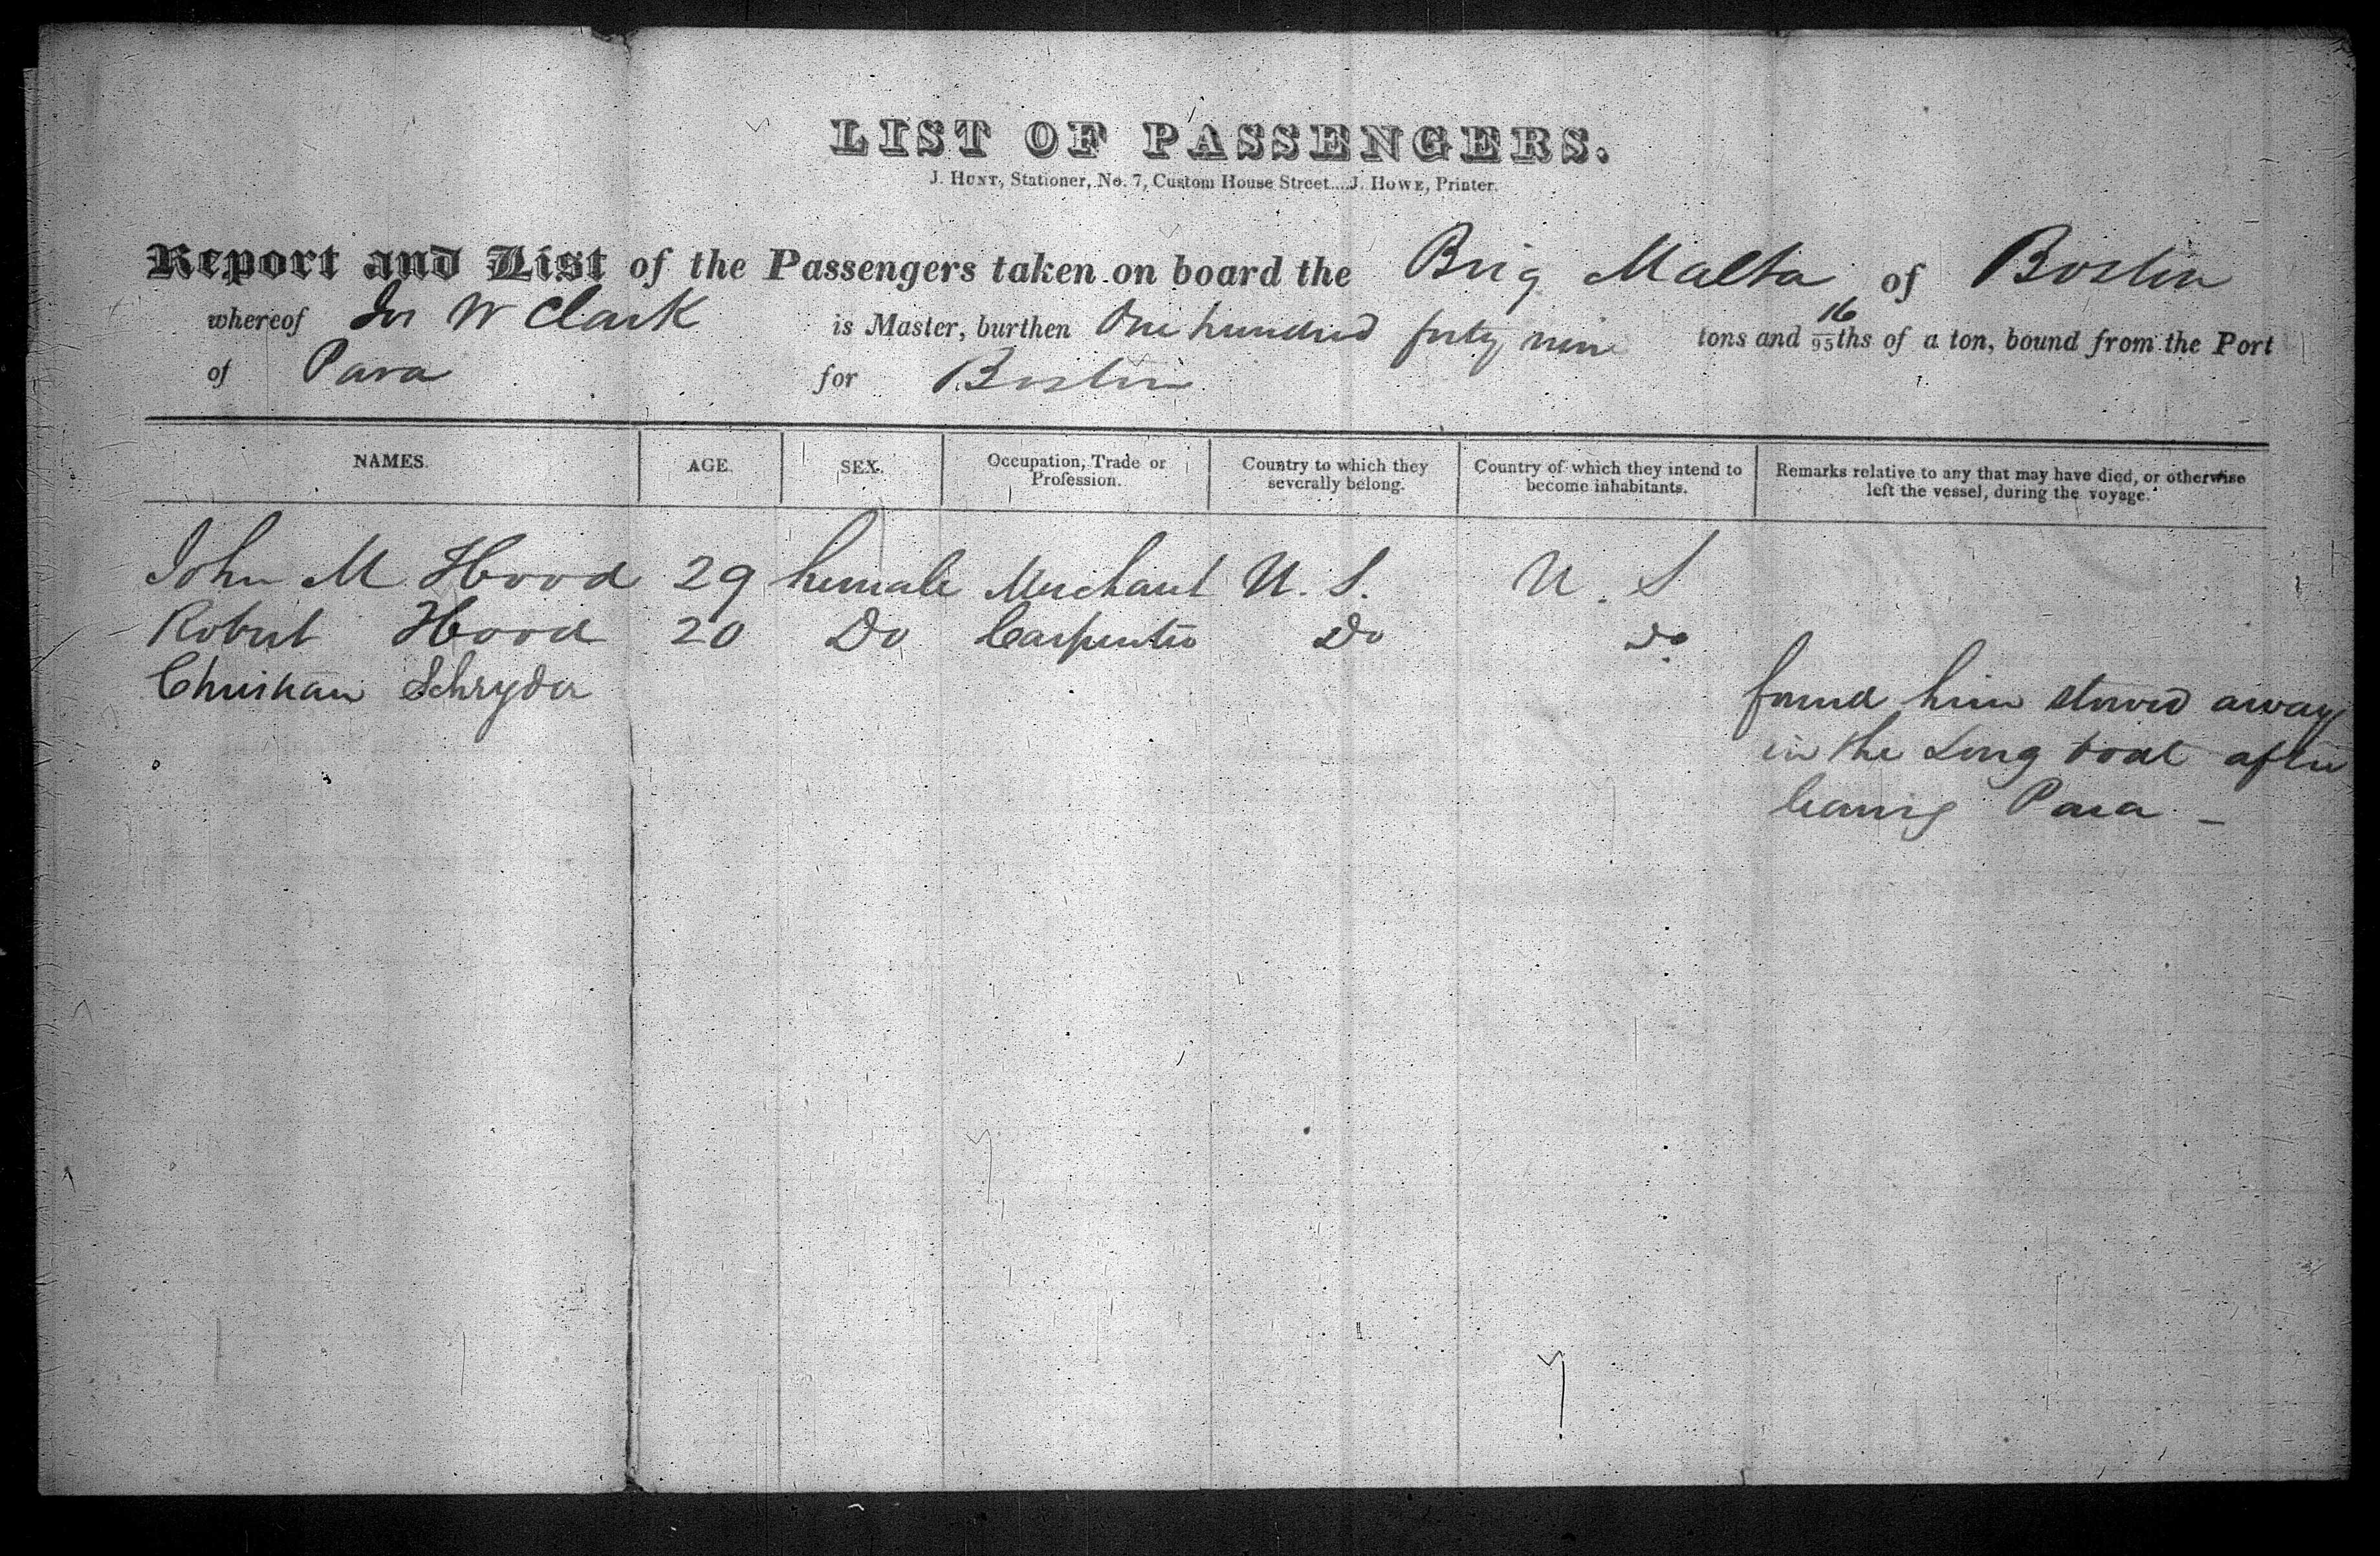 LIST OF PASSENGERS.
J. HUNT, Stationer, No. 7, Custom House Street....J. HOWE, Printer.
Report and List of the Passengers taken on board the Brig Malta of Boston
whereof Jos W Clark is Master, burthen One hundred forty nine tons and 16/95ths of a ton, bound from the Port
of Para for Boston
NAMES. AGE. SEX. Occupation, Trade or Profession. Country to which they severally belong. Country of which they intend to become inhabitants. Remarks relative to any that may have died, or otherwise left the vessel, during the voyage.
John M Hood 29 female Merchant U. S. U. S
Robert Hood 20 Do Carpenter Do Do
Christian Schryder
found him stowed away
in the Long boat after
leaving Para -